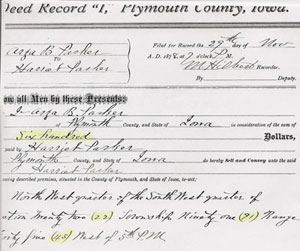 Deed Record "I," Plymouth County, Iowa.
Arza B Parker
TO
Harriet Parker
Filed for Record the 29th day of Nov
A.D. 1878, at 7 o'clock P.M.
Recorder.
By Deputy.
Know all Men by these Presents:
I Arza B. Parker
of Plymouth County, and State of Iowa in consideration of
Six Hundred Dollars,
paid by Harriet Parker
Plymouth County, and State of Iowa do hereby Sell and Convey unto the said
Harriet Parker
described premises, situated in the County of Plymouth, and State of Iowa, to-wit:
North West quarter of the South West quarter of
Section Twenty two (22) Township Ninety one (91) Range
Forty five (45) West of 5th P.M.